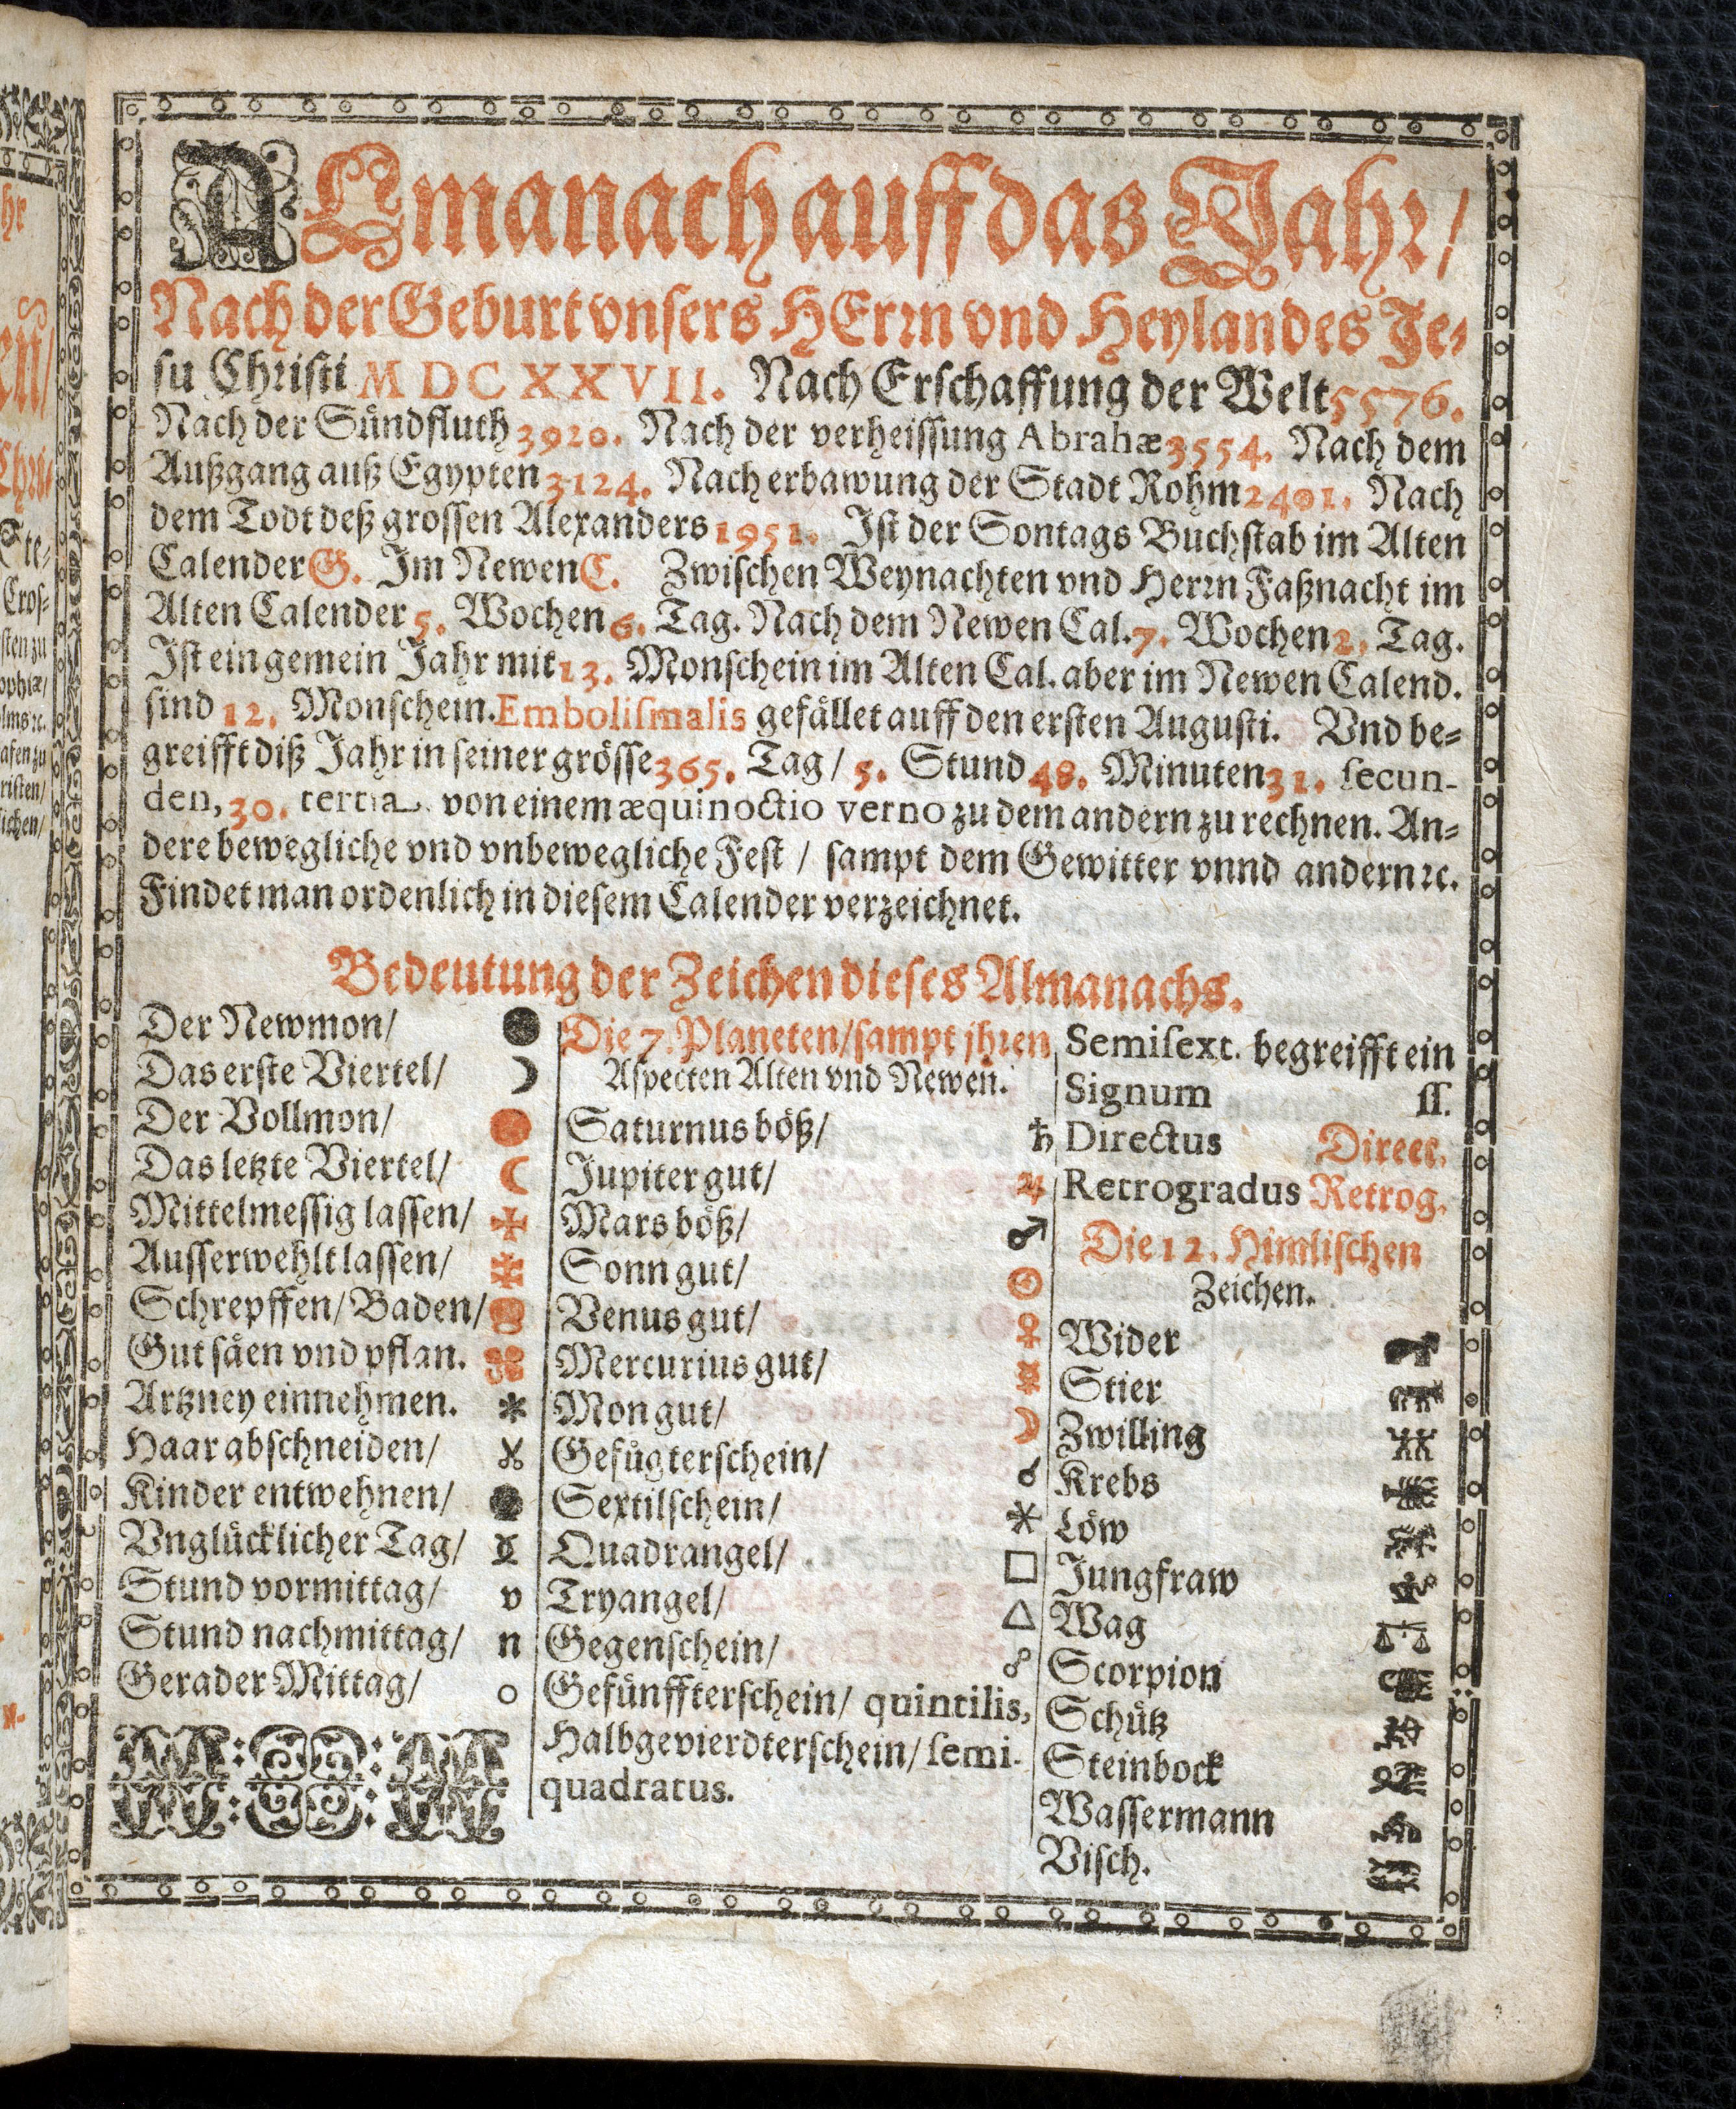 ALmanach auff das Jahr/
Nach der Geburt vnsers HErrn vnd Heylandes Je-
su Christi MDCXXVII. Nach Erschaffung der Welt 5576.
Nach der Sündfluth 3920. Nach der verheissung Abrahæ 3554. Nach dem
Außgang auß Egypten 3124. Nach erbawung der Stadt Rohm 2401. Nach
dem Todt deß grossen Alexanders 1951. Ist der Sontags Buchstab im Alten
Calender G. Im Newen C. Zwischen Weynachten vnd Herrn Faßnacht im
Alten Calender 5. Wochen 6. Tag. Nach dem Newen Cal. 7. Wochen 2. Tag.
Ist ein gemein Jahr mit 13. Monschein im Alten Cal. aber im Newen Calend.
sind 12. Monschein. Embolismalis gefället auff den ersten Augusti. Vnd be-
greifft diß Jahr in seiner grösse 365. Tag/ 5. Stund 48. Minuten 31. secun-
den, 30. tertia. von einem æquinoctio verno zu dem andern zu rechnen. An-
dere bewegliche vnd vnbewegliche Fest/ sampt dem Gewitter vnnd andern ꝛc.
Findet man ordenlich in diesem Calender verzeichnet.
Bedeutung der Zeichen dieses Almanachs.
Der Newmon/ ●
Das erste Viertel/ ☽
Der Vollmon/ ●
Das letzte Viertel/ ☾
Mittelmessig lassen/
Ausserwehlt lassen/
Schrepffen/ Baden/
Gut säen vnd pflan.
Artzney einnehmen. *
Haar abschneiden/
Kinder entwehnen/
Vnglücklicher Tag/
Stund vormittag/ v
Stund nachmittag/ n
Gerader Mittag/ o
Die 7. Planeten/ sampt jhren
Aspecten Alten vnd Newen.
Saturnus böß/ ♄
Jupiter gut/ ♃
Mars böß/ ♂
Sonn gut/ ☉
Venus gut/ ♀
Mercurius gut/ ☿
Mon gut/ ☽
Gefügterschein/ ☌
Sextilschein/ ⚹
Quadrangel/ □
Tryangel/ △
Gegenschein/ ☍
Gefünffterschein/ quintilis,
Halbgevierdterschein/ semi-
quadratus.
Semisext. begreifft ein
Signum ss.
Directus Direct.
Retrogradus Retrog.
Die 12. Himlischen
Zeichen.
Wider
Stier
Zwilling
Krebs
Löw
Jungfraw
Wag
Scorpion
Schütz
Steinbock
Wassermann
Visch.